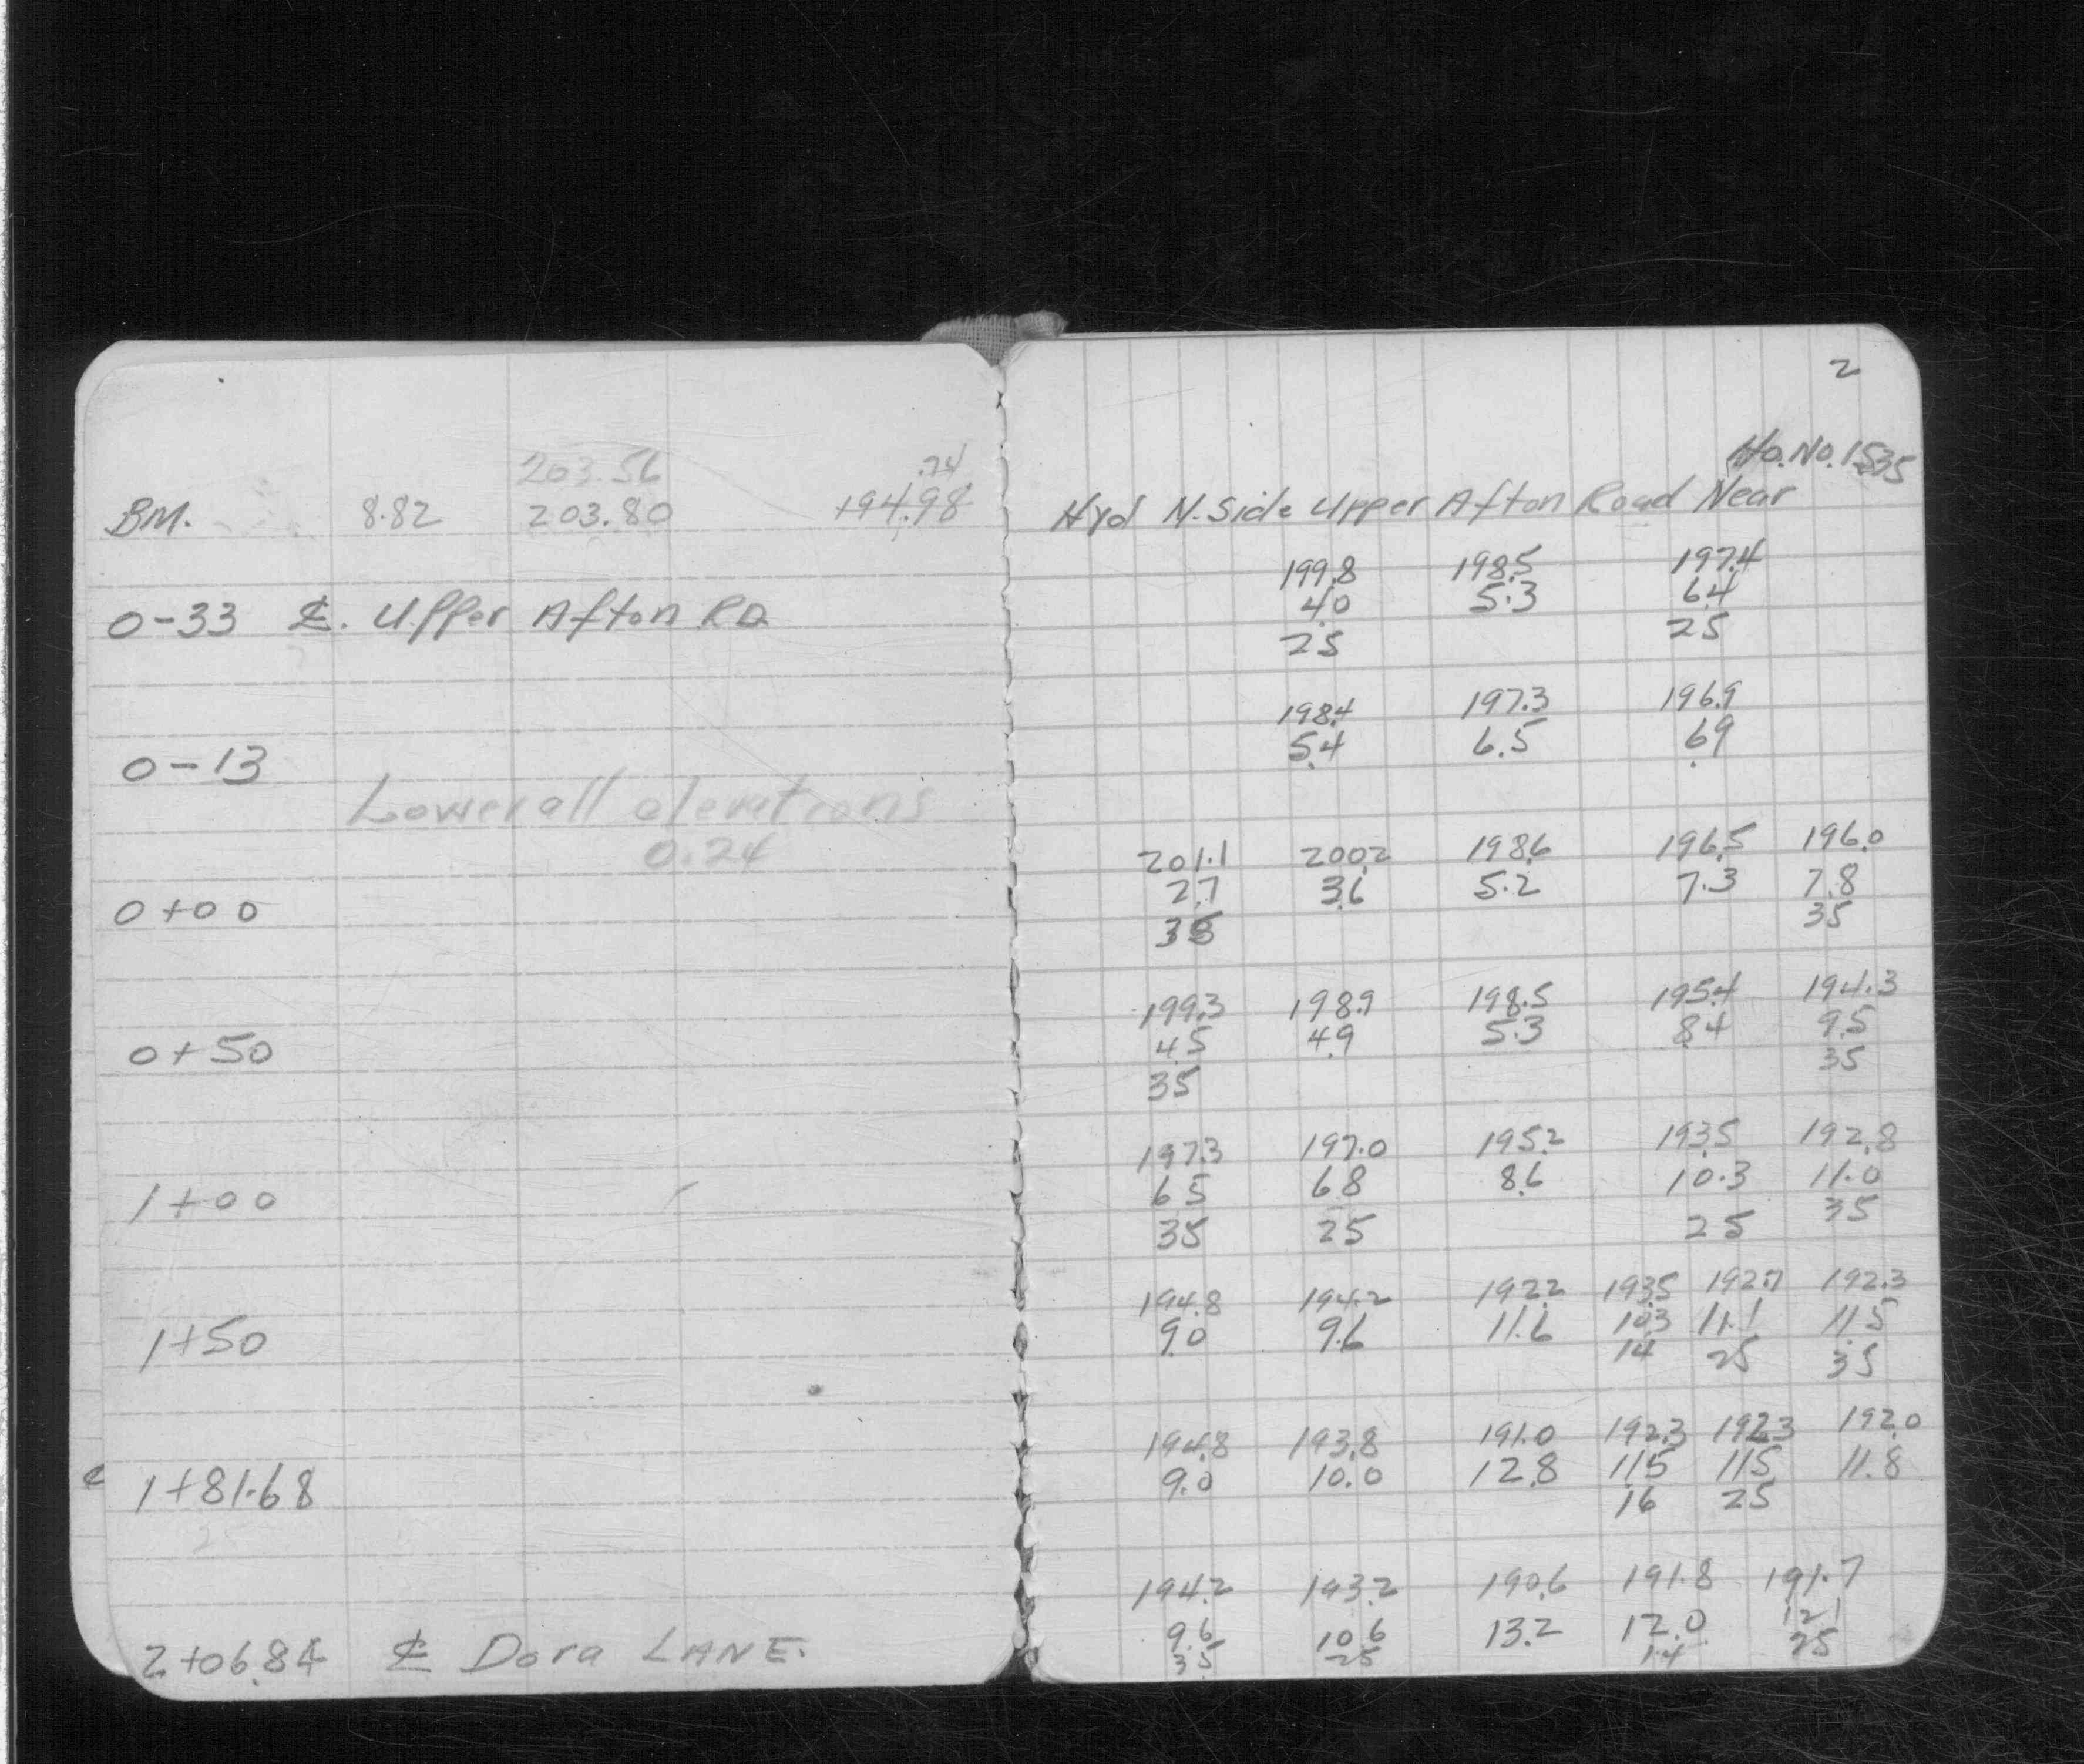 2
203.56 .74 Ho. No. 1535
BM. 8.82 203.80 194.98 Hyd N. Side Upper Afton Road Near
199.8 198.5 197.4
0-33 ℄. Upper Afton RD 4.0 5.3 6.4
25 25
198.4 197.3 196.9
0-13 5.4 6.5 6.9
Lower all elevations
0.24
201.1 200.2 198.6 196.5 196.0
0+00 2.7 3.6 5.2 7.3 7.8
35 35
199.3 198.9 198.5 195.4 194.3
0+50 4.5 4.9 5.3 8.4 9.5
35 35
197.3 197.0 195.2 193.5 192.8
1+00 6.5 6.8 8.6 10.3 11.0
35 25 25 35
194.8 194.2 192.2 193.5 192.7 192.3
1+50 9.0 9.6 11.6 10.3 11.1 11.5
14 25 35
194.8 193.8 191.0 192.3 192.3 192.0
1+81.68 9.0 10.0 12.8 11.5 11.5 11.8
16 25
194.2 193.2 190.6 191.8 191.7
2+06.84 ℄ Dora LANE. 9.6 10.6 13.2 12.0 12.1
35 25 14 25